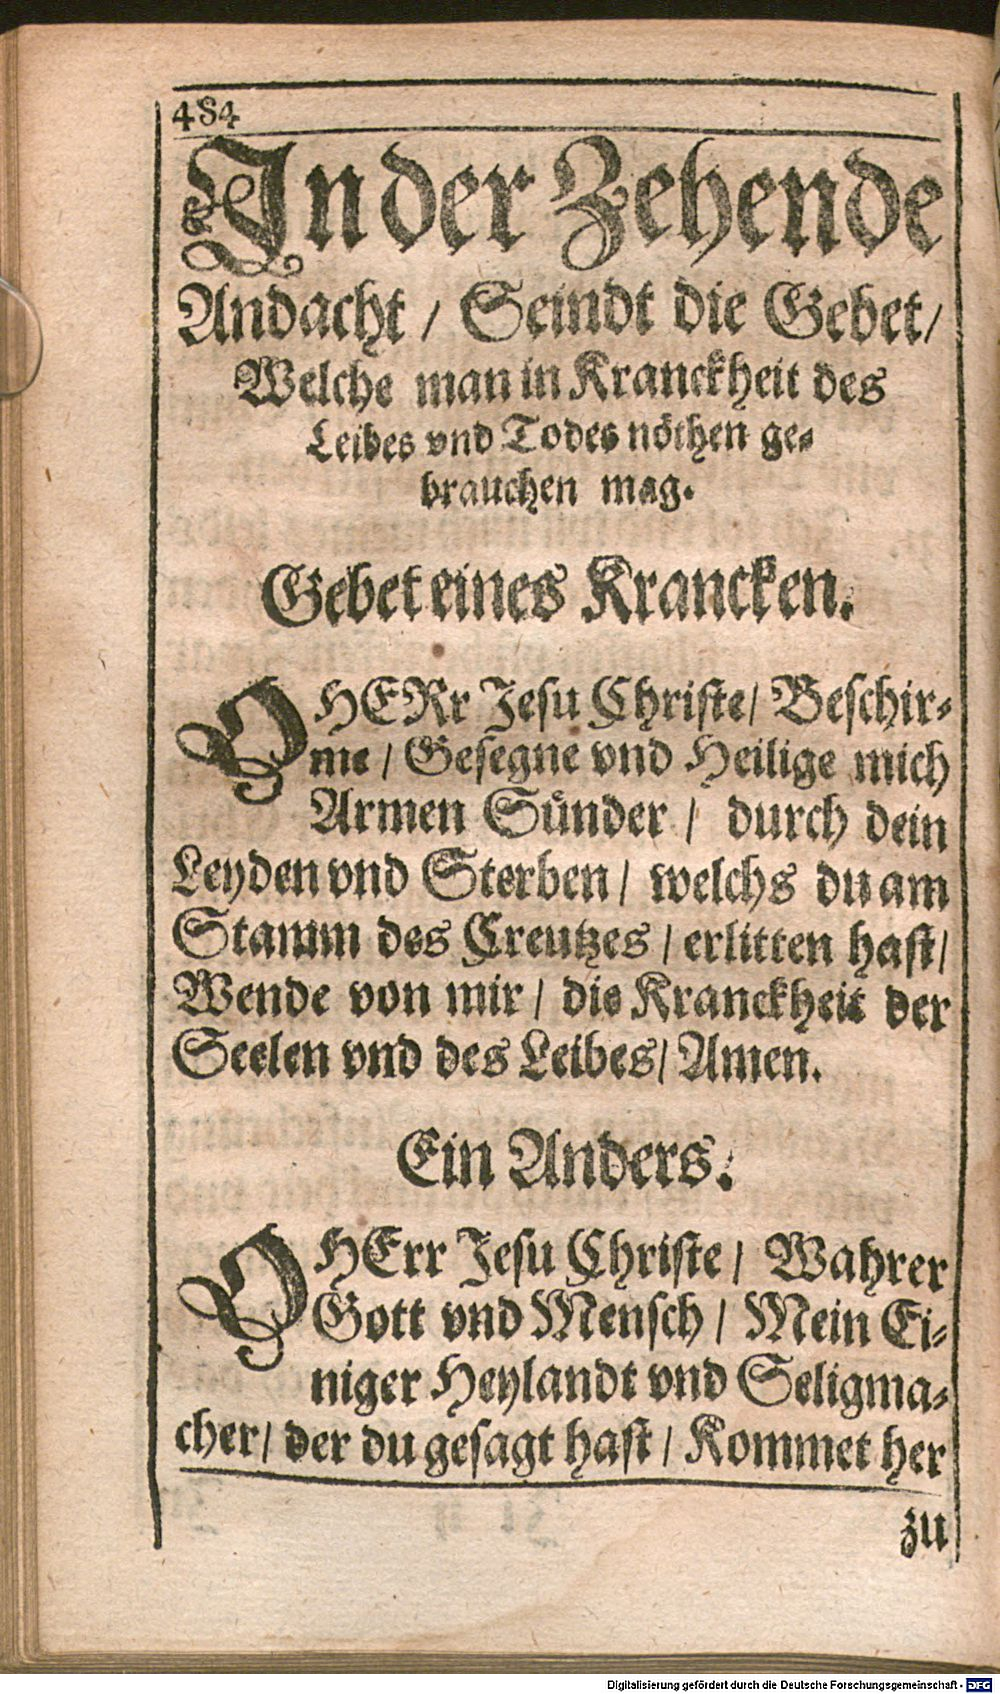 484
In der Zehende
Andacht / Seindt die Gebet /
Welche man in Kranckheit des
Leibes vnd Todes nöthen ge-
brauchen mag.
Gebet eines Krancken.
O HERr Jesu Christe / Beschir-
me / Gesegne vnd Heilige mich
Armen Sünder / durch dein
Leyden vnd Sterben / welchs du am
Stamm des Creutzes / erlitten hast /
Wende von mir / die Kranckheit der
Seelen vnd des Leibes / Amen.
Ein Anders.
O HErr Jesu Christe / Wahrer
Gott vnd Mensch / Mein Ei-
niger Heylandt vnd Seligma-
cher / der du gesagt hast / Kommet her
zu
Digitalisierung gefördert durch die Deutsche Forschungsgemeinschaft - DFG